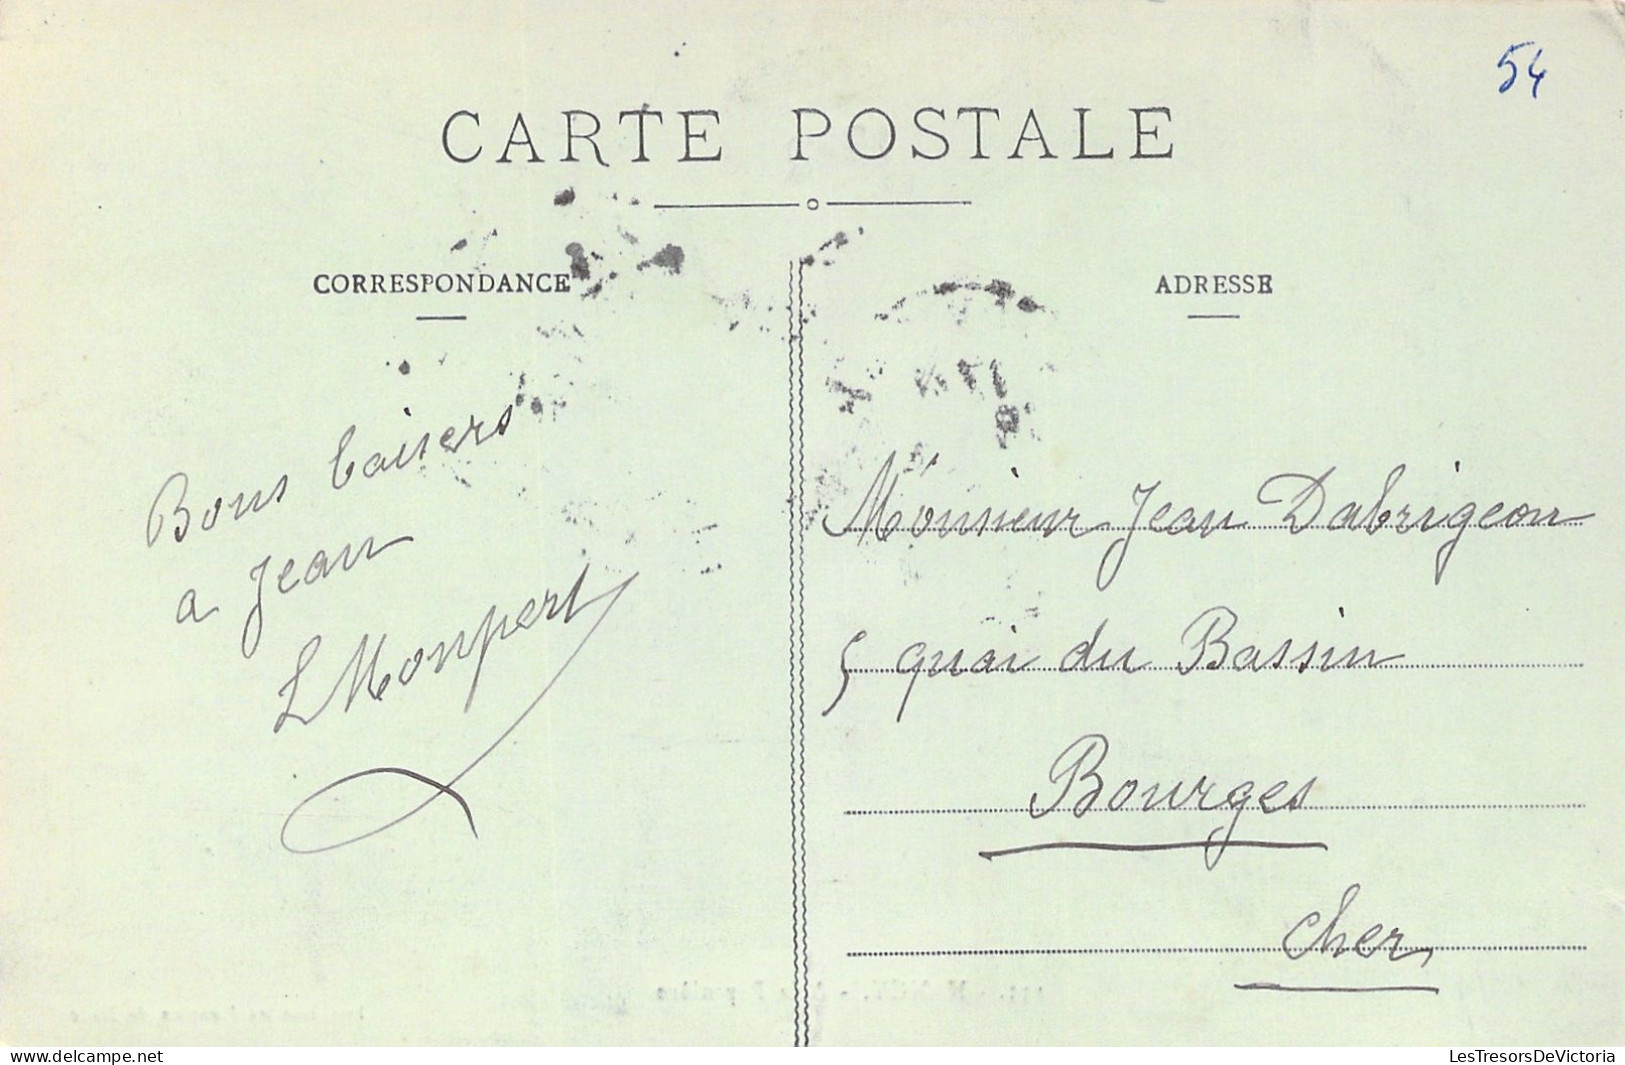 54
CARTE POSTALE
CORRESPONDANCE
ADRESSE
Bons baisers
a Jean
L Monpert
Monsieur Jean Dabrigeon
5 quai du Bassin
Bourges
Cher
www.delcampe.net
LesTresorsDeVictoria